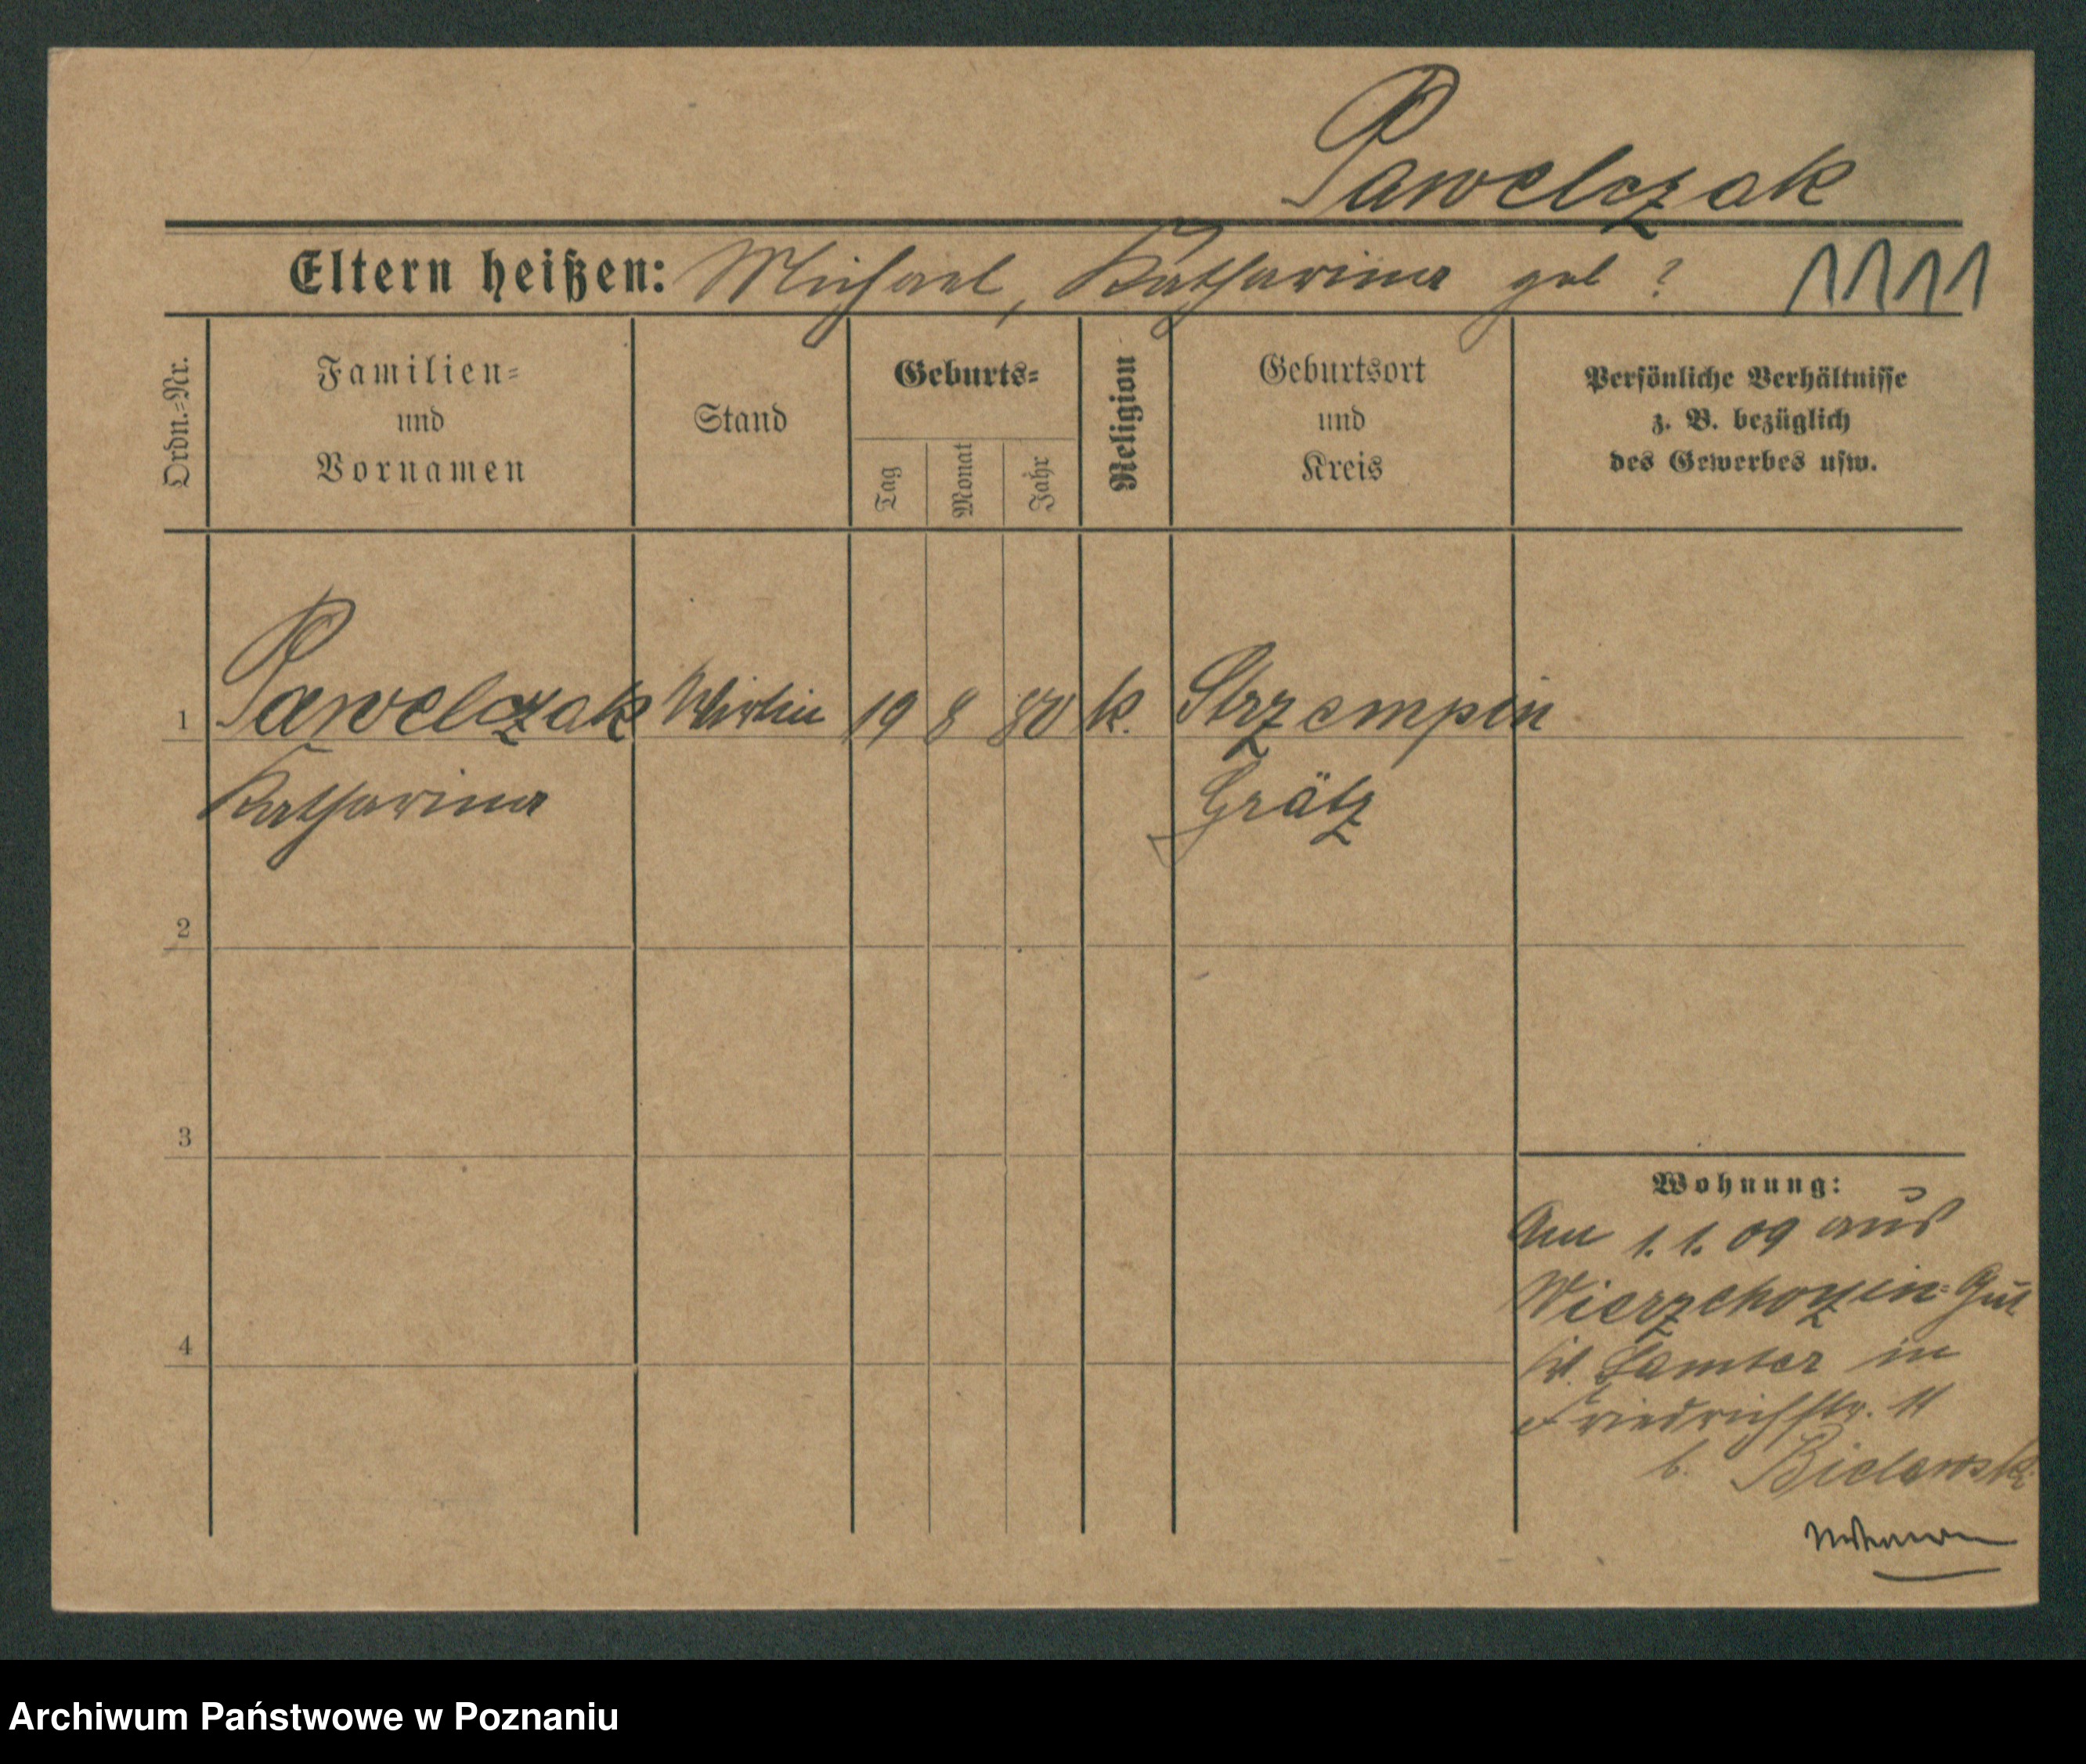 Pawelczak
Eltern heißen: Michael, Katharina geb ? 1111
Ordn.=Nr.
Familien=
und
Vornamen
Stand
Geburts=
Tag
Monat
Jahr
Religion
Geburtsort
und
Kreis
Persönliche Verhältnisse
z. B. bezüglich
des Gewerbes usw.
1 Pawelczak Wirtin 19 8 80 k. Strzempin
Katharina Grätz
2
3
4
Wohnung:
Am 1. 1. 09 aus
Wierzchozin= Gut
Samter in
Friedrichstr. 11
b. Bielawski
Archiwum Państwowe w Poznaniu